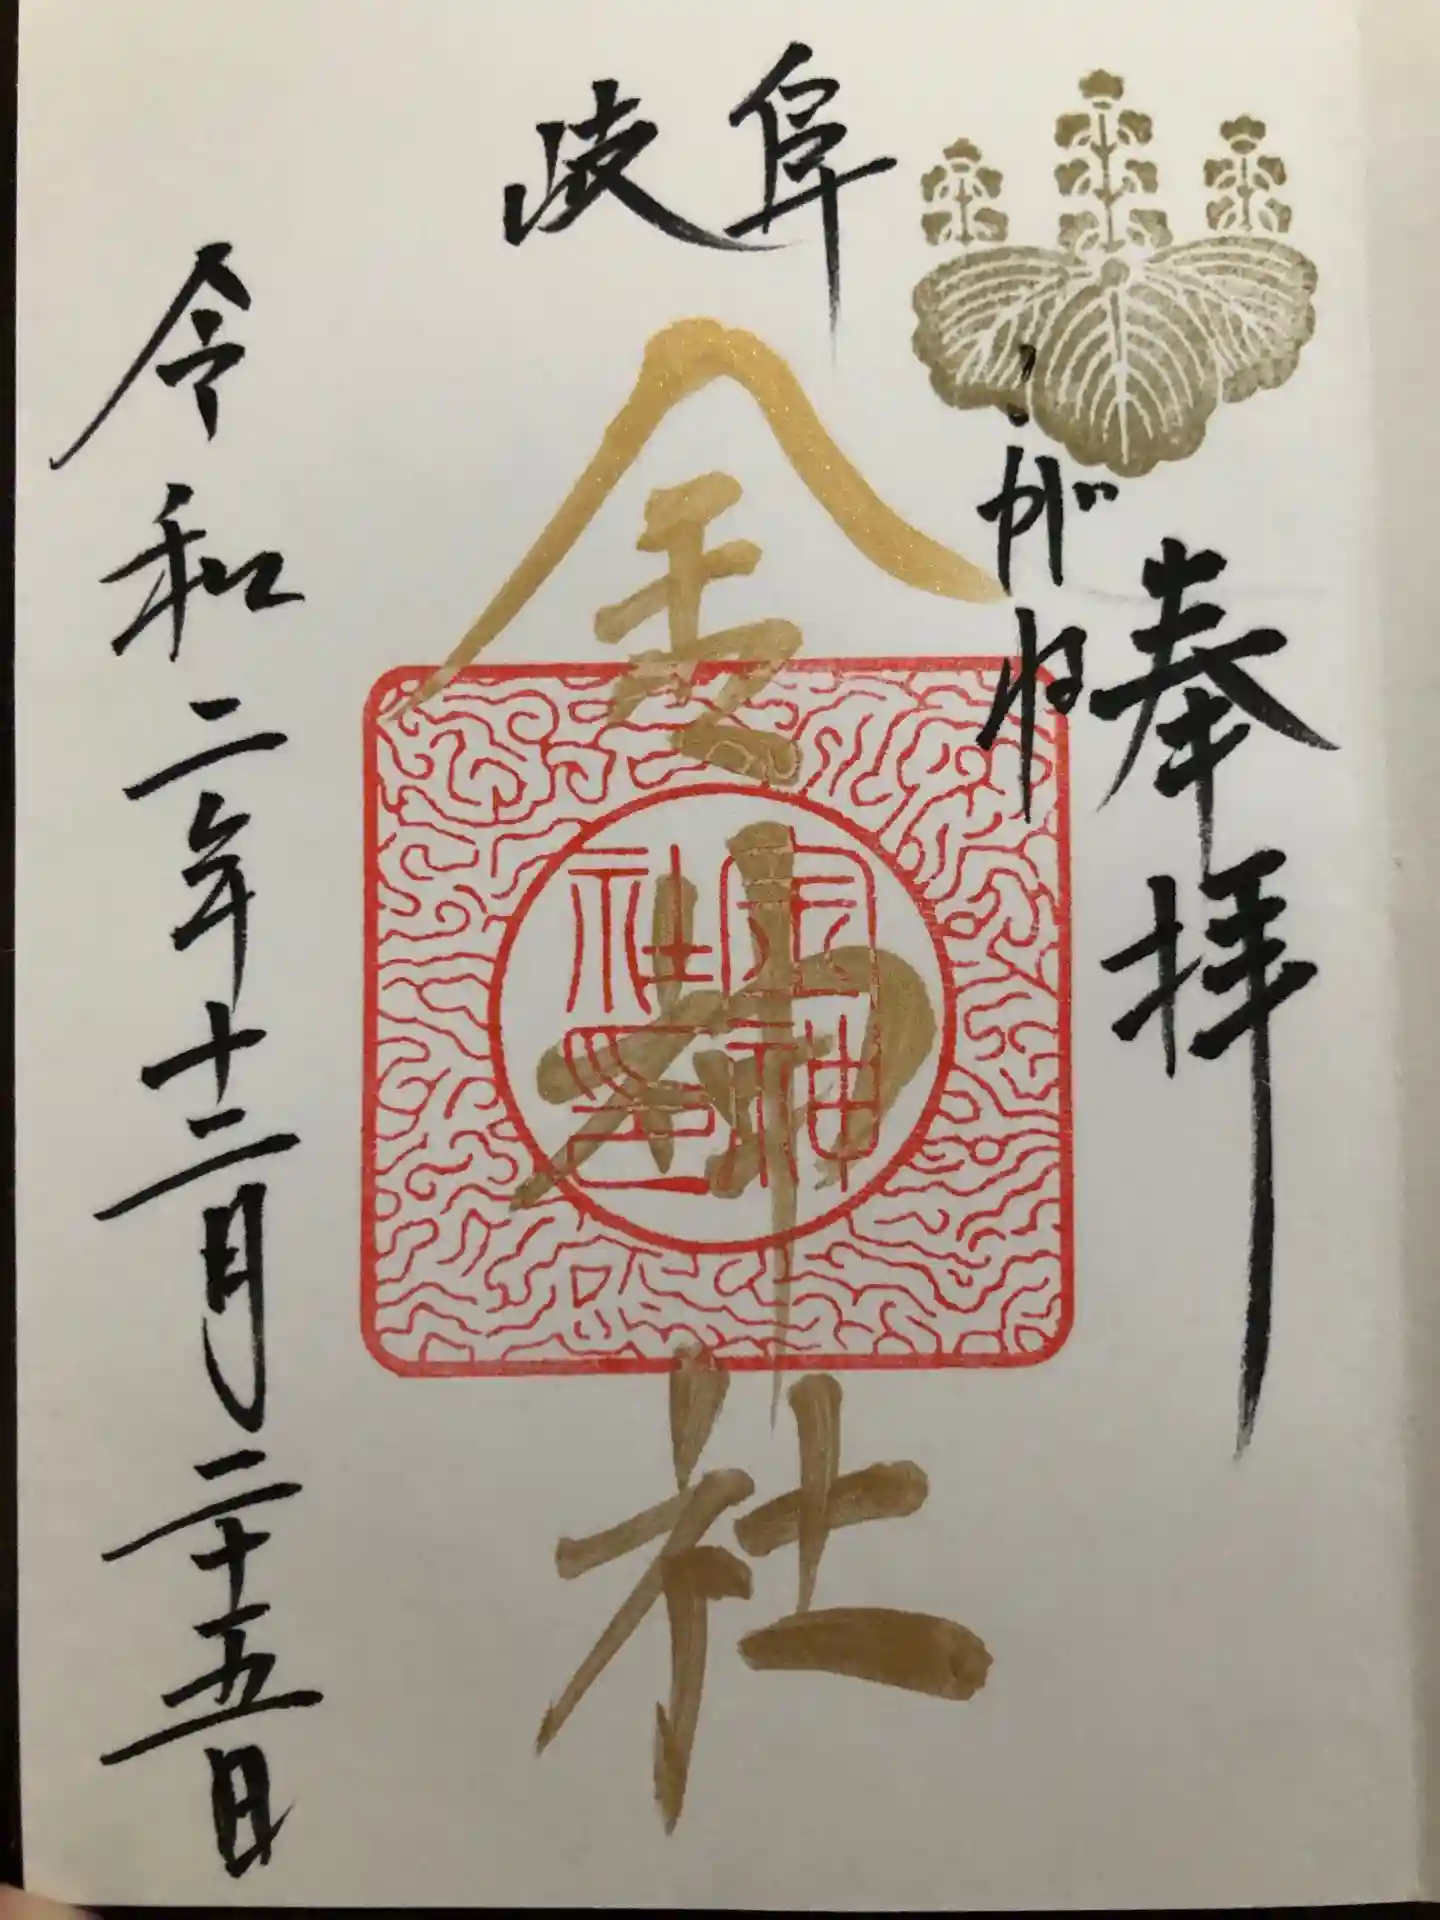 奉拝
こがね
岐阜
金神社
金神社印
令和二年十二月二十五日